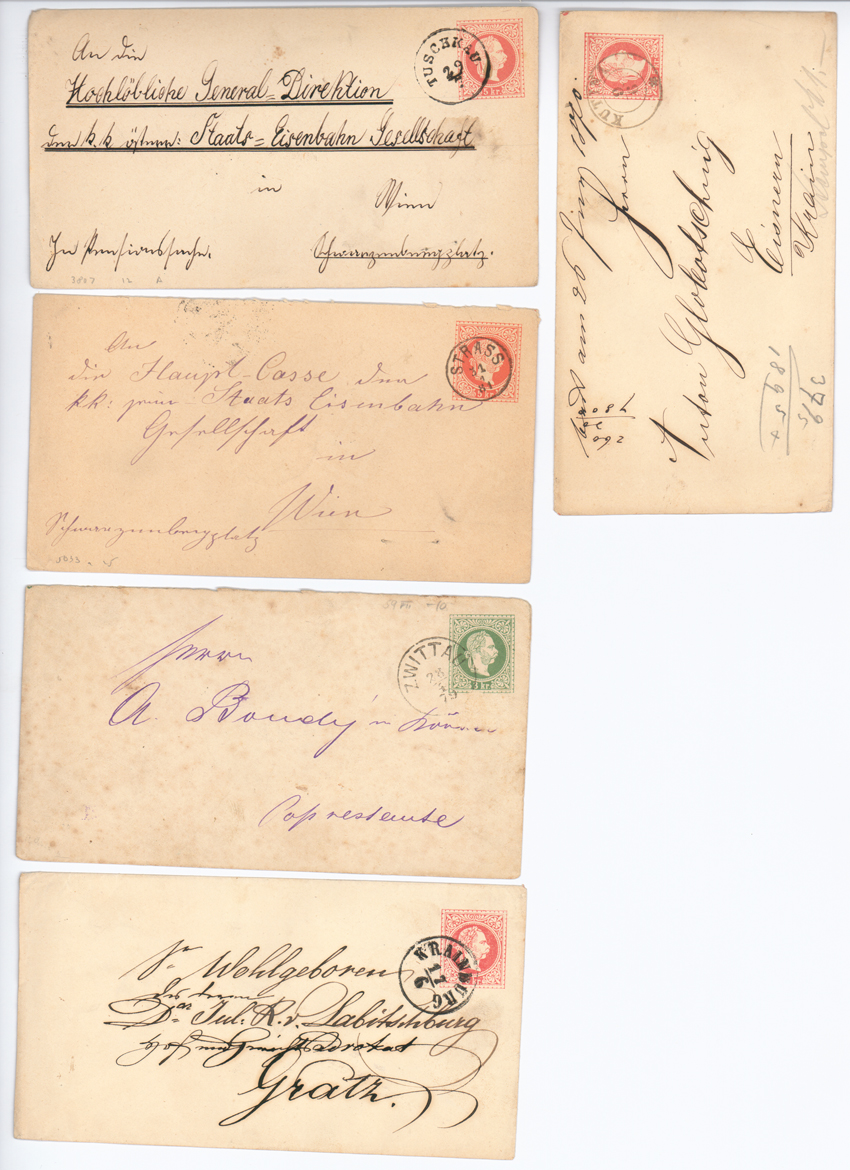 An die
Hochlöbliche General=Direktion
der k.k. österr: Staats=Eisenbahn Gesellschaft
in
Wien
In Pensionssache.
Schwarzenbergplatz.
TUSCHKAU
29
5 Kr
3807 12
An
die Haupt-Casse der
kk: priv: Staats Eisenbahn
Gesellschaft
in
Wien
Schwarzenbergplatz
STRASS
81
Herrn
A. Bondy in
Post restante
ZWITTAU
28
79
3 Kr
Sr Wohlgeboren
Dr Jul. R. v. Labitschburg
Gratz.
KRAINBURG
11
6
Herrn
Anton Globotschnig
Eisnern
Krain
am 26 Juny 1870.
260
780
KUT